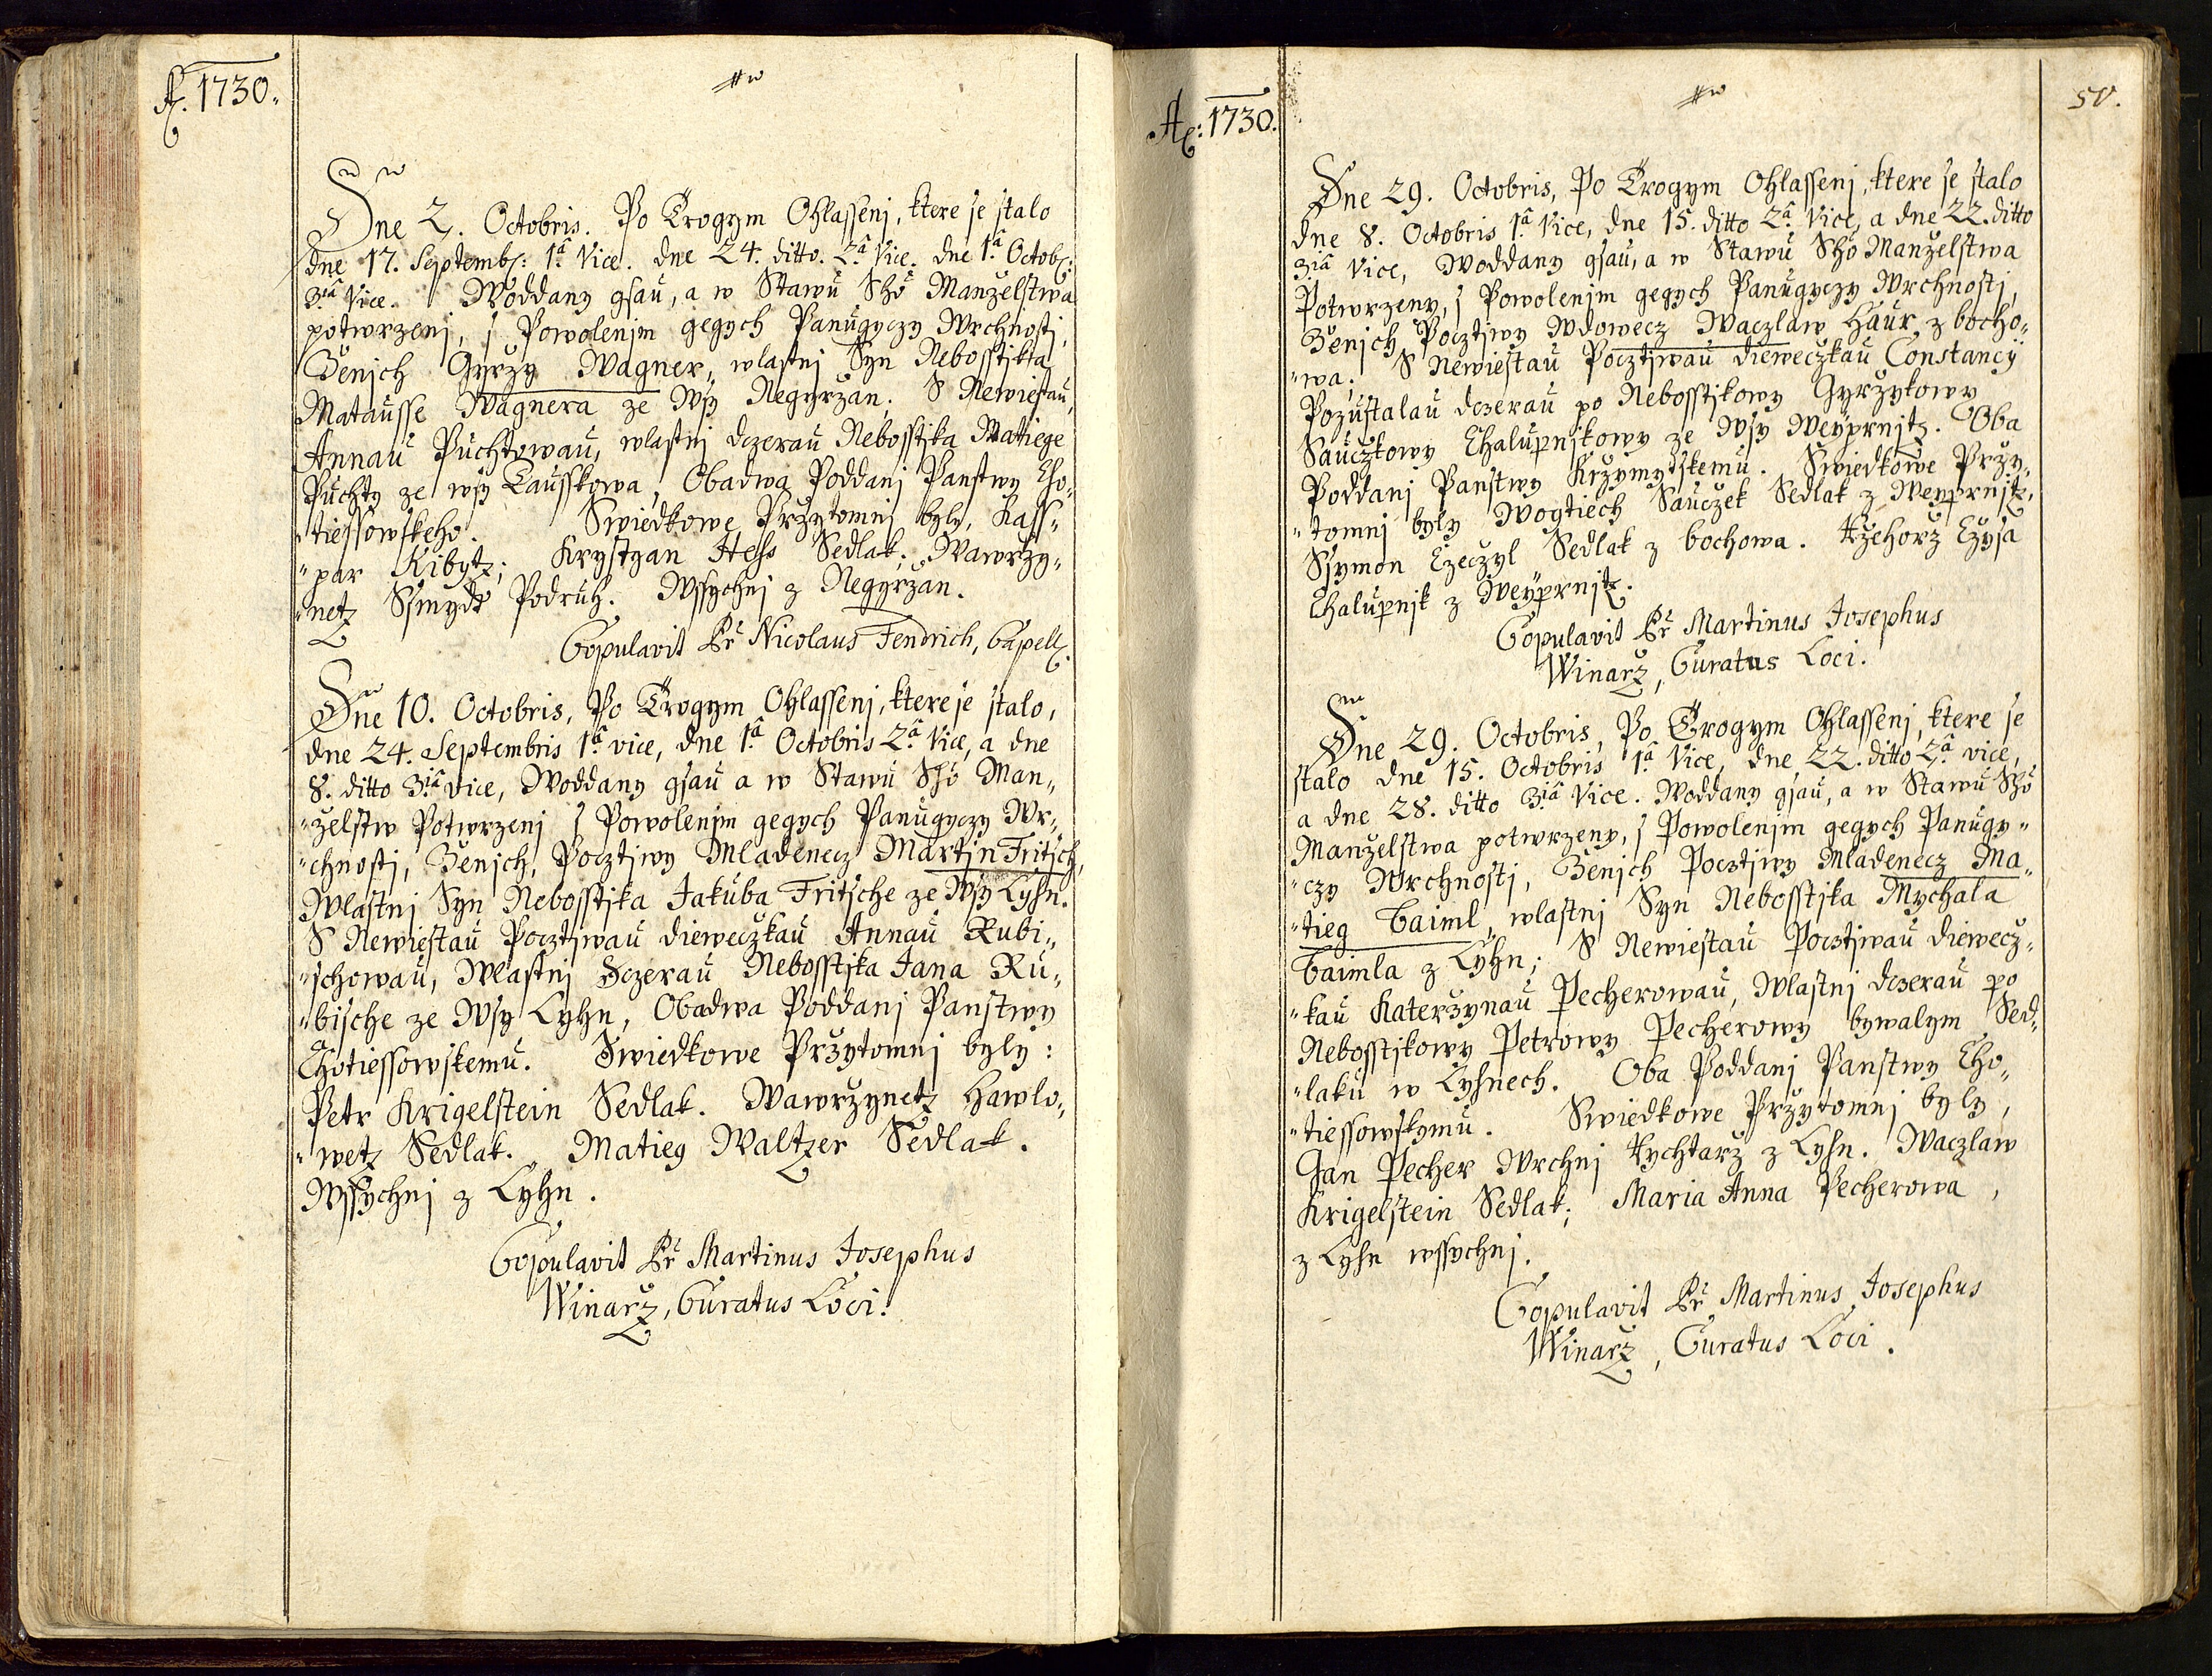 A. 1730.
Dne 2. Octobris. Po Trogym Ohlassenj, ktere se stalo
dne 17. Septemb: 1â Vice. dne 24. ditto. 2â Vice. dne 1â Octob:
3iâ Vice. Woddany gsau, a w Stawu Sho Manželstwa
potwrzenj, s Powolenjm gegych Panugyczy Wrchnosti,
Ženich Gyrzy Wagner, wlastnj Syn Nebosstjkta
Matausse Wagnera ze Wsy Negyržan. S Newiestau,
Annau Puchtowau, wlastnj dczerau Nebosstjka Matiege
Puchty ze wsy Lausskowa, Obadwa Poddanj Panstwy Cho„
„tiessowskeho. Swiedkowe Pržytomnj byly, Kass„
„par Kibytz; Krystyan Hess Sedlak; Wawržy„
„netz Ssmydt Podruh. Wssychnj z Negyržan.
Copulavit Pr Nicolaus Fendrich, Capell.
Dne 10. Octobris, Po Trogym Ohlassenj, ktere se stalo,
dne 24. Septembris 1â vice, dne 1â Octobris 2â Vice, a dne
8. ditto 3iâ vice, Woddany gsau a w Stawu Sho Man„
„želstw Potwrzenj s Powolenjm gegych Panugyczy Wr„
„chnosti, Ženich, Pocztjwy Mladenecz Martjn Fritsch,
Wlastnj Syn Nebosstjka Jakuba Fritsche ze Wsy Lyhn.
S Newiestau Pocztjwau dieweczkau Annau Rubi„
„schowau, Wlastnj Dczerau Nebosstjka Jana Ru„
„bische ze Wsy Lyhn, Obadwa Poddanj Panstwy
Chotiessowskemu. Swiedkowe Pržytomnj byly:
Petr Krigelstein Sedlak. Wawržynetz Hawlo„
„wetz Sedlak. Matieg Waltzer Sedlak.
Wssychnj z Lyhn.
Copulavit Pr Martinus Josephus
Winarž, Curatus Loci.
A: 1730.
50.
Dne 29. Octobris, Po Trogym Ohlassenj, ktere se stalo
dne 8. Octobris 1â Vice, dne 15. ditto 2â Vice, a dne 22. ditto
3iâ Vice, Woddany gsau, a w Stawu Sho Manželstwa
Potwrzeny, s Powolenjm gegych Panugyczy Wrchnosti,
Ženich Pocztjwy Wdowecz Waczlaw Haur z bocho„
„wa. S Newiestau Pocztjwau dieweczkau Constancÿ
Pozustalau dczerau po Nebosstjkowy Gyržykowy
Sauczkowy Chalupnjkowy ze Wsy Weÿprnjtz. Oba
Poddanj Panstwy Kržymytskemu. Swiedkowe Pržy„
„tomnj byly Wogtiech Sauczek Sedlak z Weyprnjtz,
Ssymon Czeczyl Sedlak z bochowa. Ržehorž Czysa
Chalupnjk z Weÿprnjtz.
Copulavit Pr Martinus Josephus
Winarž, Curatus Loci.
Dne 29. Octobris, Po Trogym Ohlassenj, ktere se
stalo dne 15. Octobris 1â Vice, dne 22. ditto 2â vice,
a dne 28. ditto 3iâ Vice. Woddany gsau, a w Stawu Sho
Manželstwa potwrzeny, s Powolenjm gegych Panugy„
„czy Wrchnosti, Ženich Pocztjwy Mladenecz Ma„
„tieg Taiml, wlastnj Syn Nebosstjka Mychala
Taimla z Lyhn; S Newiestau Pocztjwau diewecz„
„kau Kateržynau Pecherowau, Wlastnj dczerau po
Nebosstjkowy Petrowy Pecherowy bywalym Sed„
„laku w Lyhnech. Oba Poddanj Panstwy Cho„
„tiessowskymu. Swiedkowe Pržytomnj byly,
Jan Pecher Wrchnj Rychtarž z Lyhn. Waczlaw
Krigelstein Sedlak; Maria Anna Pecherowa,
z Lyhn wssychnj.
Copulavit Pr Martinus Josephus
Winarž, Curatus Loci.